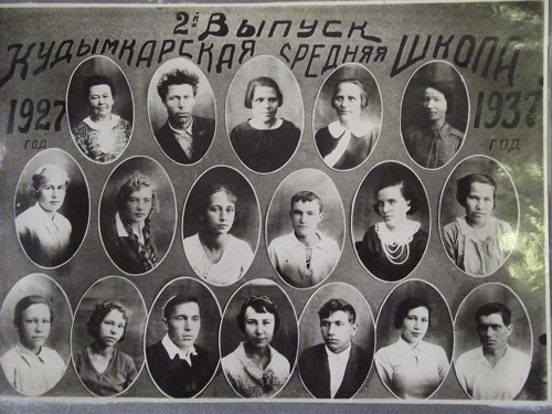 2й Выпуск
Кудымкарская средняя школа
1927 год
1937 год